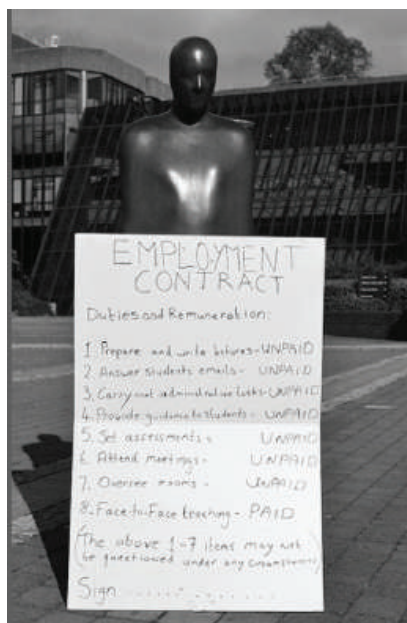 EMPLOYMENT
CONTRACT
Duties and Remuneration:
1. Prepare and write lectures - UNPAID
2. Answer students emails - UNPAID
3. Carry out administrative tasks - UNPAID
4. Provide guidance to students - UNPAID
5. Set assessments - UNPAID
6. Attend meetings - UNPAID
7. Oversee exams - UNPAID
8. Face-to-Face teaching - PAID
(The above 1-7 items may not
be questioned under any circumstances)
Sign ..............